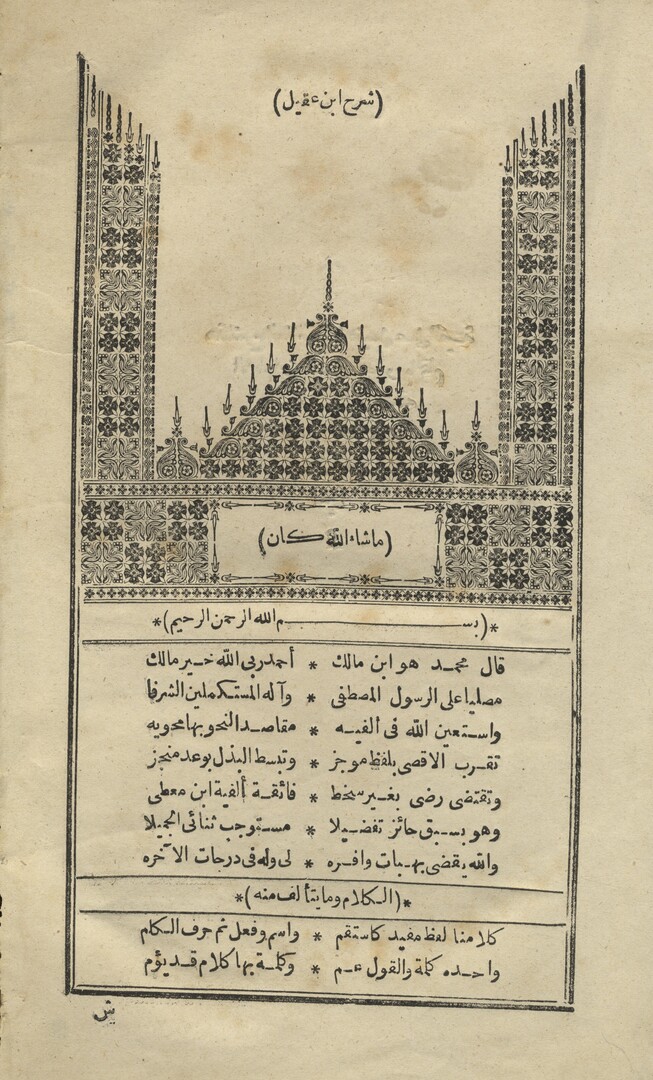 (شرح ابن عقيل)
(ماشاء الله كان)
*(بسم الله الرحمن الرحيم)*
قال محمد هو ابن مالك * أحمد ربي الله خير مالك
مصليا على الرسول المصطفى * وآله المستكملين الشرفا
واستعين الله فى ألفيه * مقاصد النحو بها محويه
تقرب الاقصى بلفظ موجز * وتبسط البذل بوعد منجز
وتقتضى رضى بغير سخط * فائقة ألفية ابن معطى
وهو بسبق حائز تفضيلا * مستوجب ثنائى الجميلا
والله يقضى بهبات وافره * لى وله فى درجات الآخره
*(الكلام وما يتألف منه)*
كلامنا لفظ مفيد كاستقم * واسم وفعل ثم حرف الكلم
واحده كلمة والقول عم * وكلمة بها كلام قد يؤم